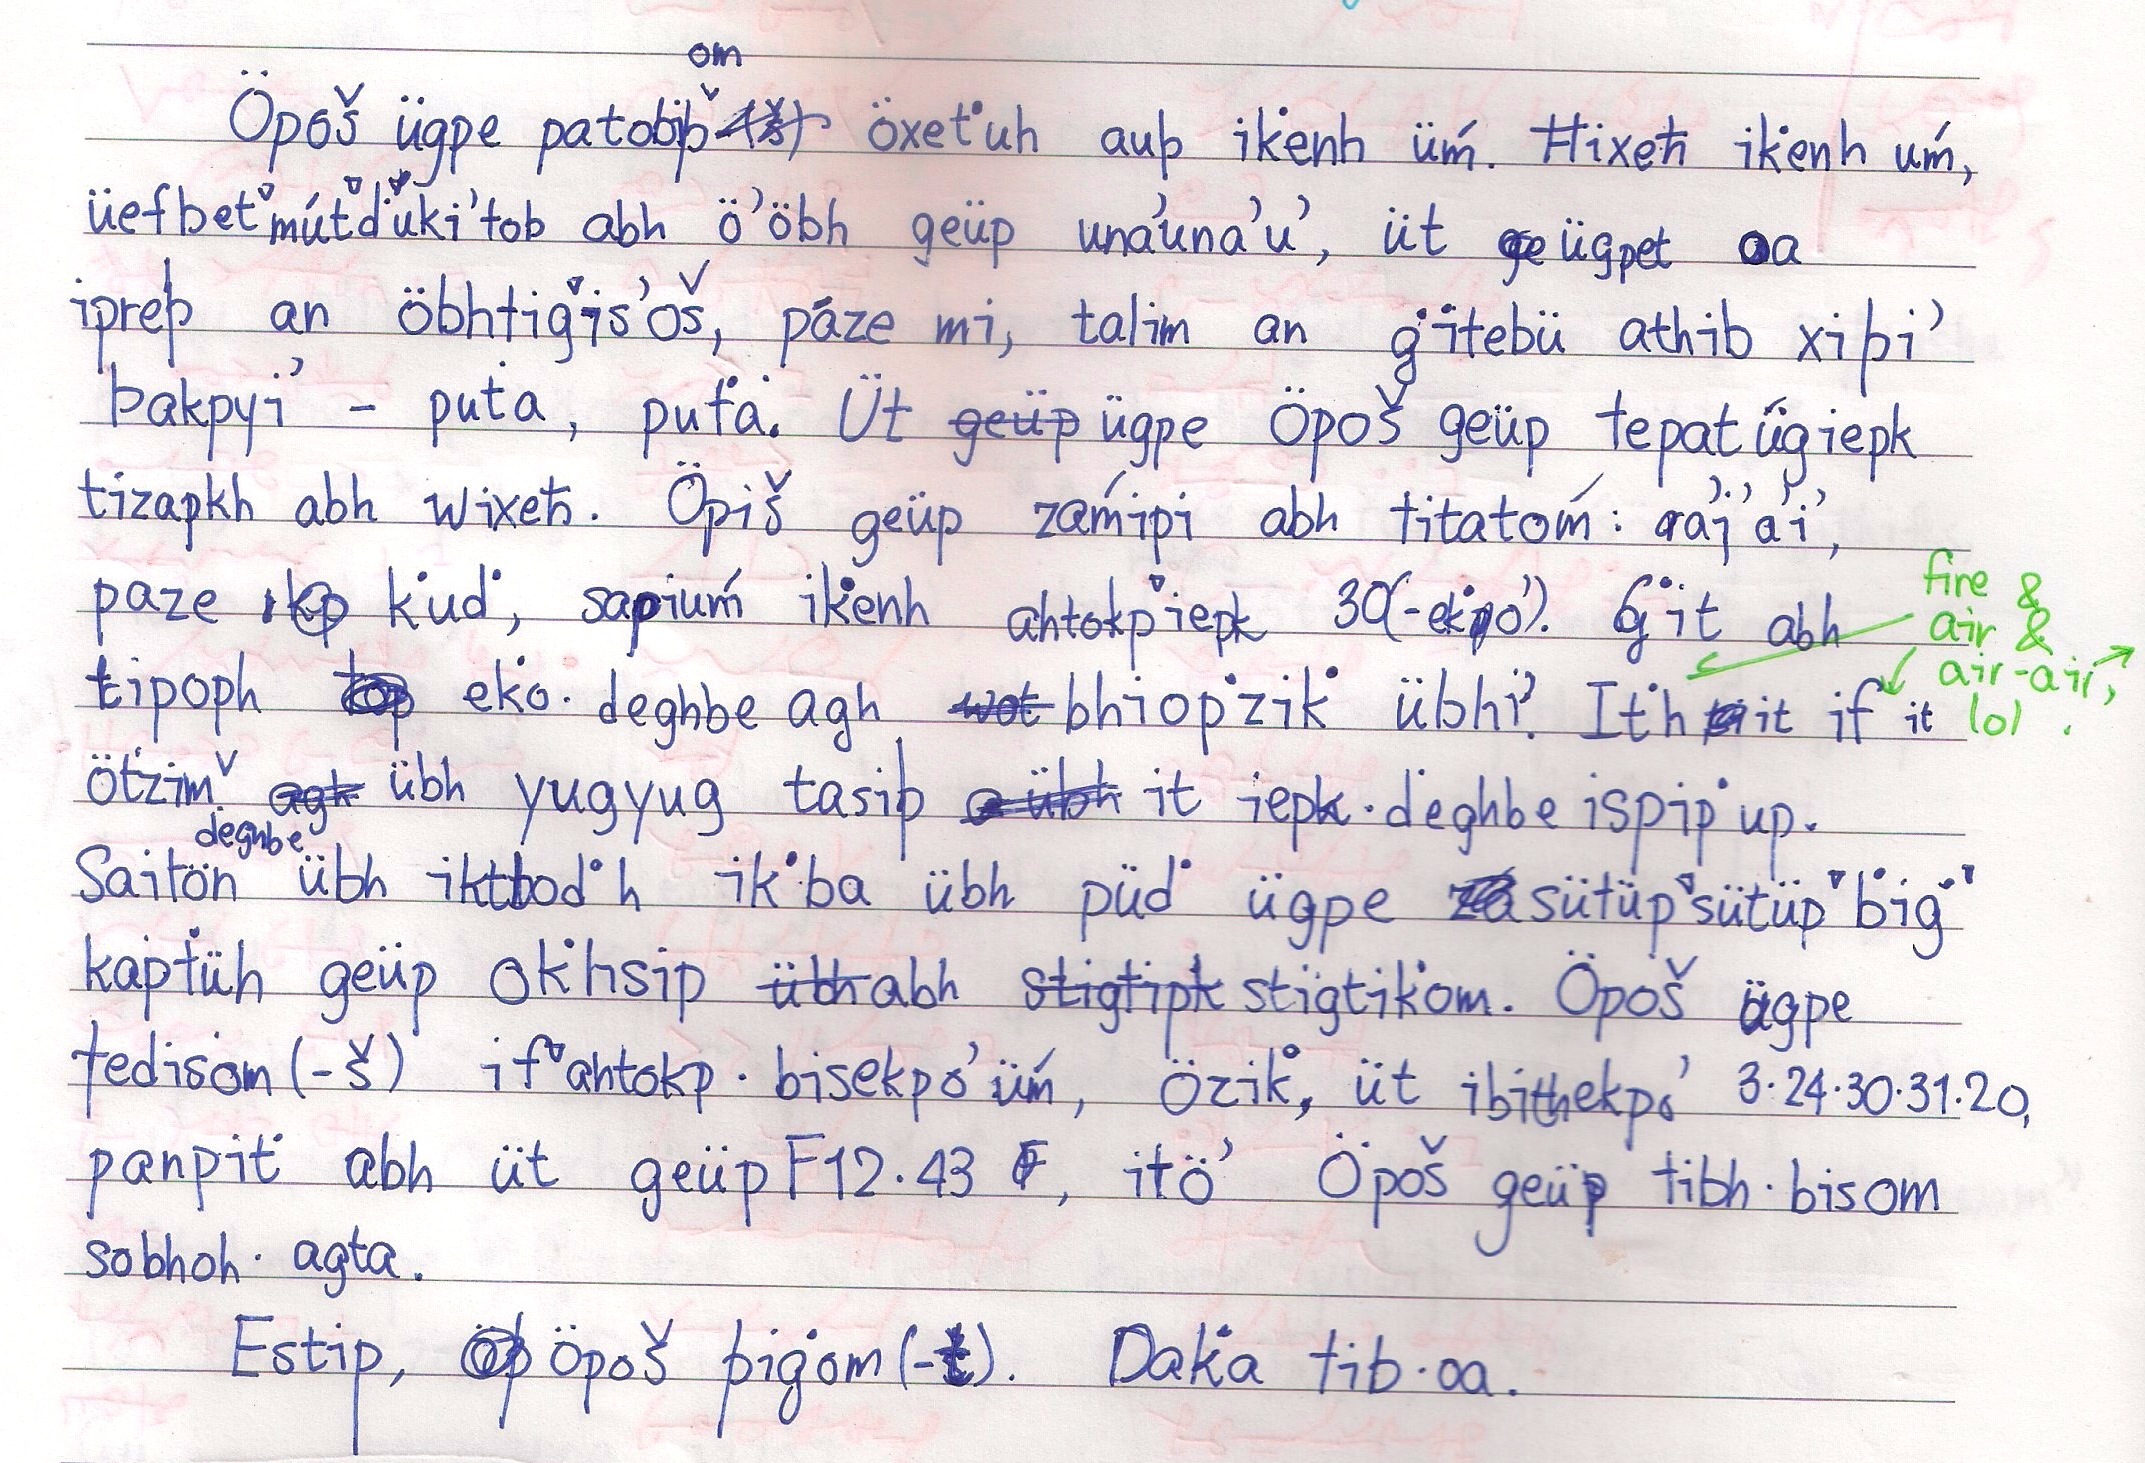 om
Öpoš ügpe patobþ öxet'uh auþ ik̇enh üḿ. Ħixeħ ik̇enh uḿ,
üefbet mútd'uki'tob abh ö'öbh geüp una'una'u', üt ügpet oa
ipreþ an öbhtigis'oš, páze mi, talim an ġitebü athib xiþi'
þakpyi' - puṫa, puṫa. Üt geüp ügpe Öpoš geüp tepatügiepk
tizapkh abh wixeħ. Öpiš geüp záḿipi abh titatoḿ: raj'ai',
paze k'ud', sapiuḿ ik̇enh ahtokp°iepk 30(-ekpo'). Ġit abh
fire &
air &
air-air,
lol.
tipoph eko·deghbe agh wot bhiop'zik' übhi'? It'h it if it
öt'zim übh yugyug tasiþ übh it iepk·deghbe ispip'up.
deghbe
Saitön übh iktbod'h ik'ba übh püd' ügpe sütüp°sütüp°big
kapṫüh geüp ok'hsip übh abh stigtipk stïgtik'om. Öpoš ügpe
tedisom (-š) if°ahtokp·bisekpo'üḿ, Özik̇, üt ibithekpo' 3·24·30·31·20,
panpit' abh üt geüp F12·43, itö' Öpoš geüp tibh·bisom
sobhoh·agta.
Estip, öpoš þiġom (-t). Dak̇a tib·oa.